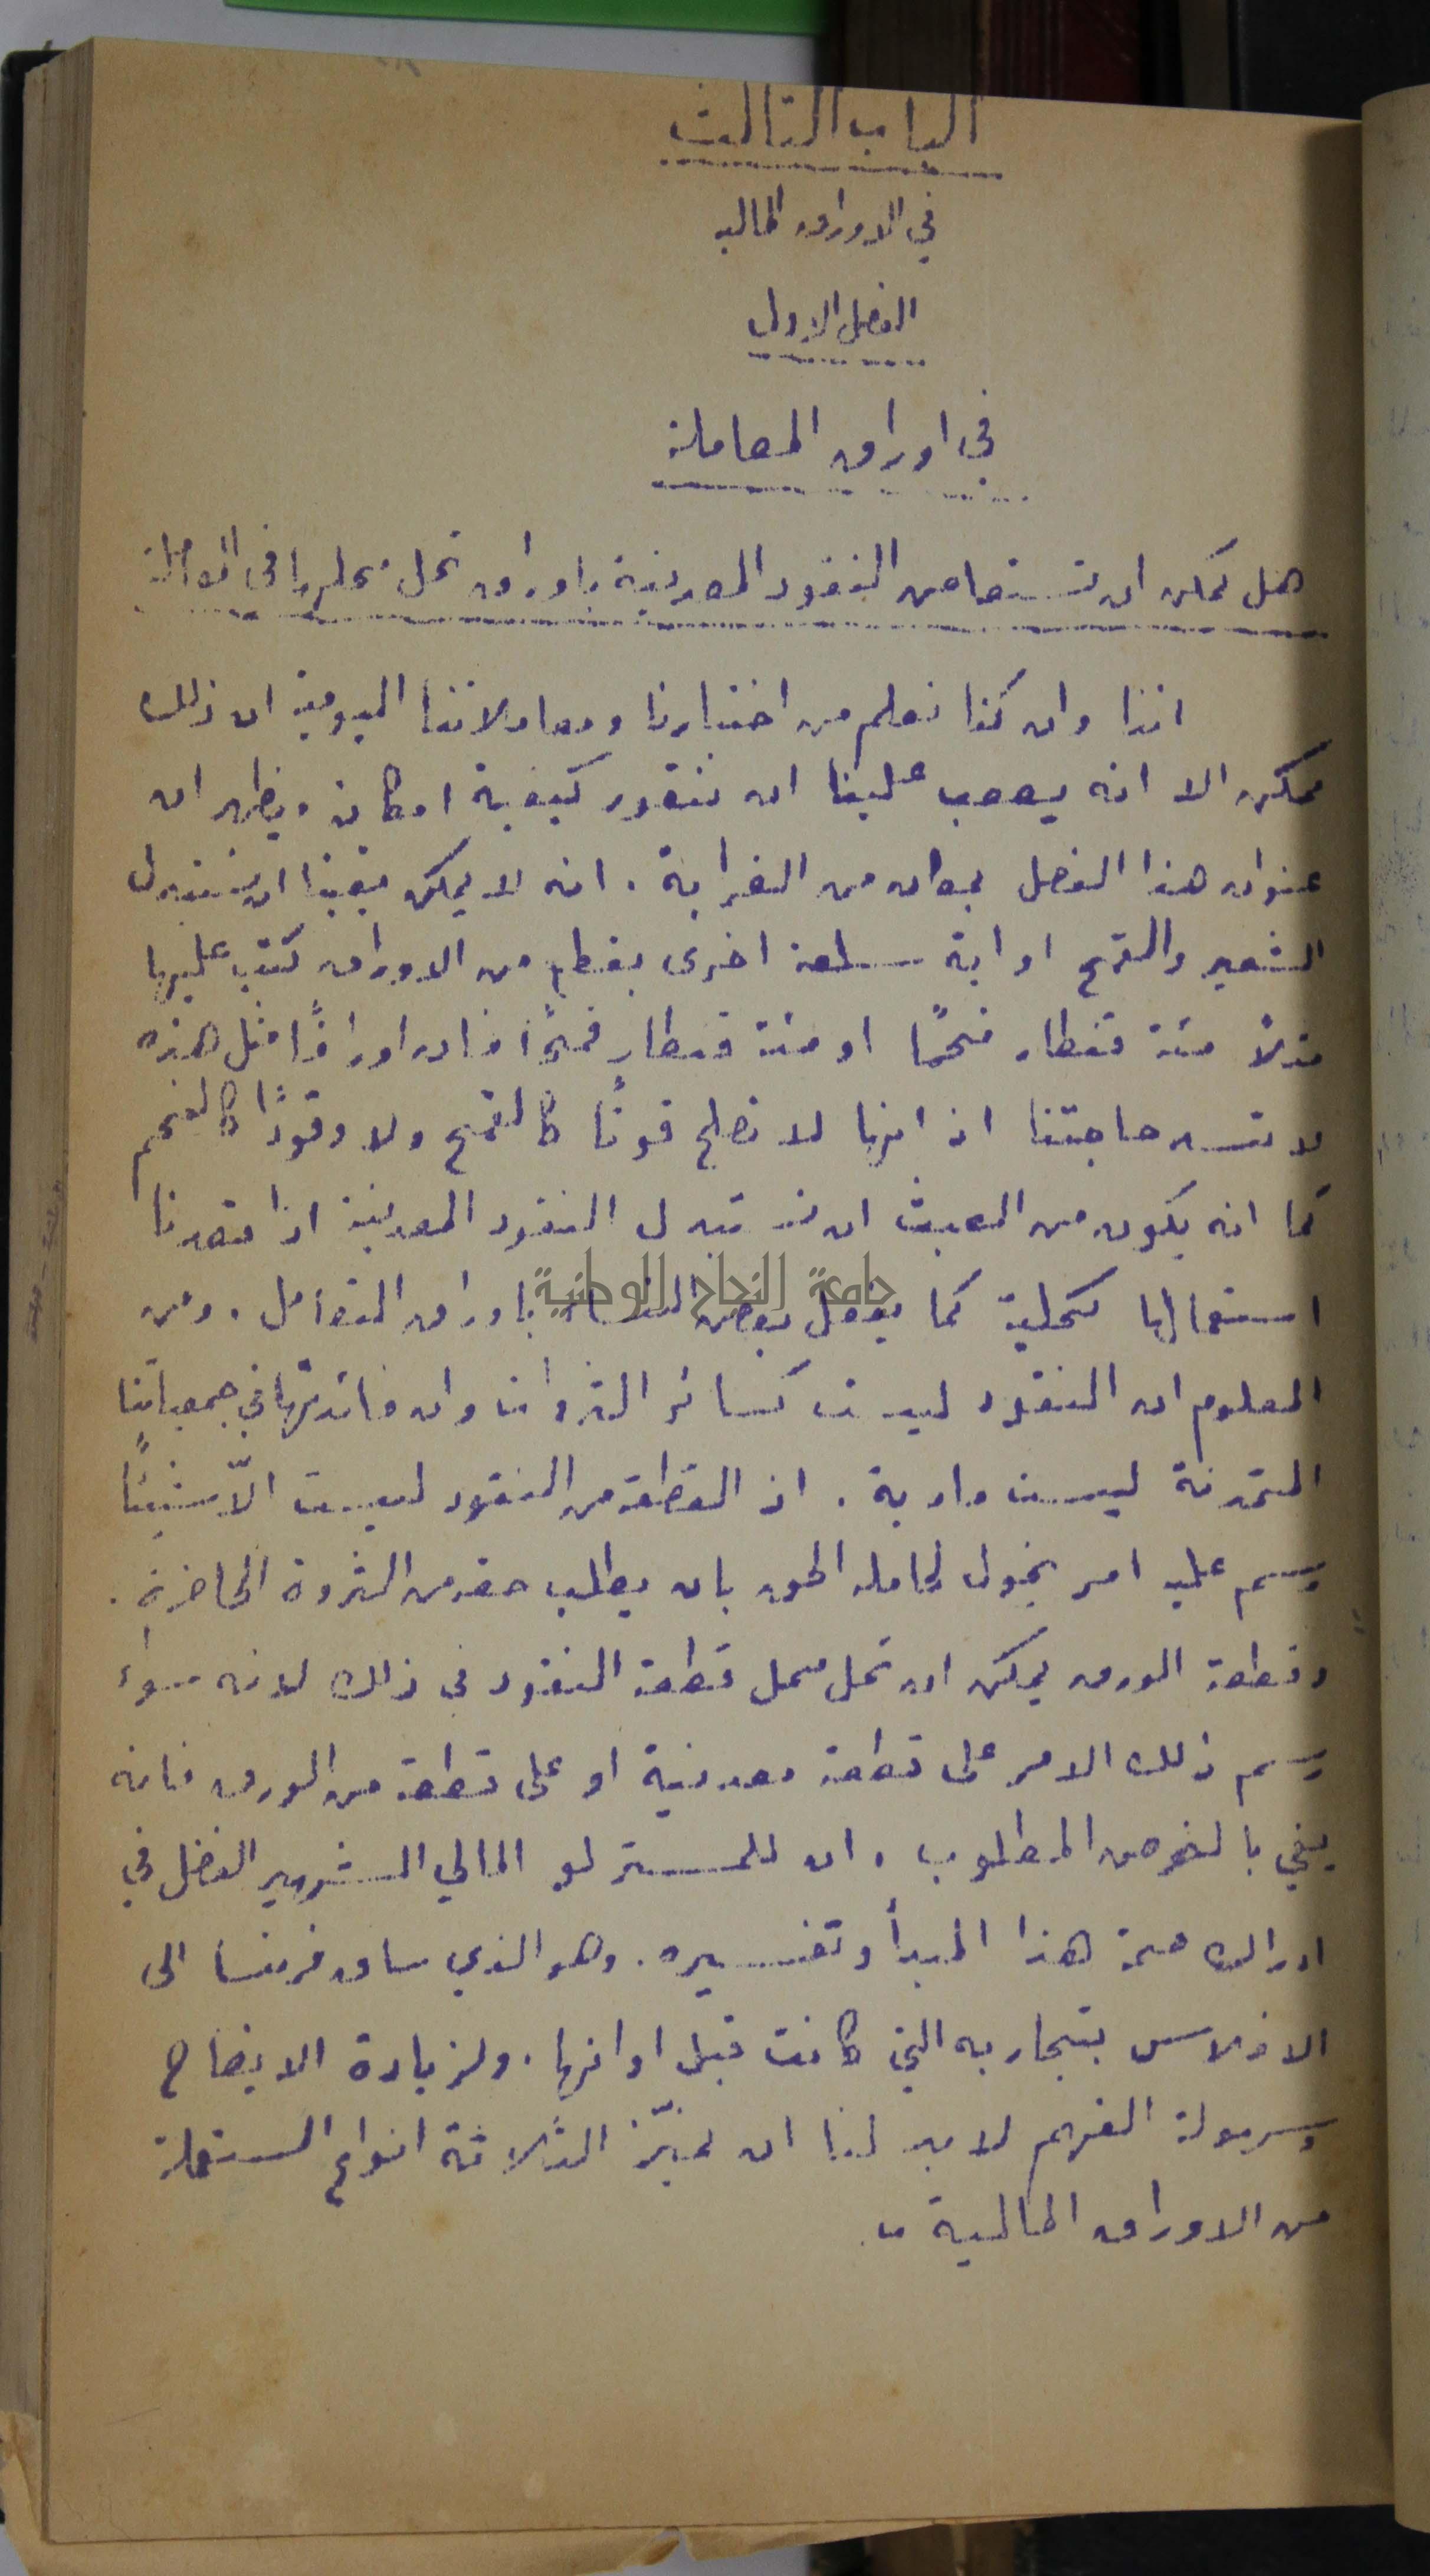 الباب الثالث
في الاوراق المالية
الفصل الاول
في اوراق المعاملة
هل يمكن ان تستعاض النقود المعدنية باوراق تحل محلها في المعاملة
اننا وان كنا نعلم من اختبارنا ومعاملاتنا اليومية ان ذلك
ممكن الا انه يصعب علينا ان نتصور كيفية امكانه ويظهر ان
عنوان هذا الفصل بمكان من الغرابة . انه لا يمكن يقينا ان نستبدل
الشعير والقمح او اية سلعة اخرى بقطع من الاوراق كتب عليها
مثلاً مئة قنطار فحمًا او مئة قنطار قمحًا فان اوراقًا مثل هذه
لا تسد حاجتنا اذ انها لا تصلح قوتًا كالقمح ولا وقودًا كالفحم
كما انه يكون من العبث ان نستبدل النقود المعدنية اذا قصدنا
استعمالها كحلية كما يفعل بعض النساء باوراق التعامل . ومن
جامعة النجاح الوطنية
المعلوم ان النقود ليست كسائر الثروات وان فائدتها في جمعياتنا
المتمدنة ليست مادية . اذ القطعة من النقود ليست الاّ شيئًا
رسم عليه امر يخول لحامله الحق بان يطلب حقه من الثروة الحاضرة .
وقطعة الورق يمكن ان تحل محل قطعة النقود في ذلك لانه سواء
رسم ذلك الامر على قطعة معدنية او على قطعة من الورق فانه
يفي بالغرض المطلوب . ان للمستر لو المالي الشهير الفضل في
ادراك صحة هذا المبدأ وتفسيره . وهو الذي ساق فرنسا الى
الافلاس بتجاربه التي كانت قبل اوانها . ولزيادة الايضاح
وسهولة الفهم لا بد لنا ان نميّز الثلاثة انواع المستعملة
من الاوراق المالية ..